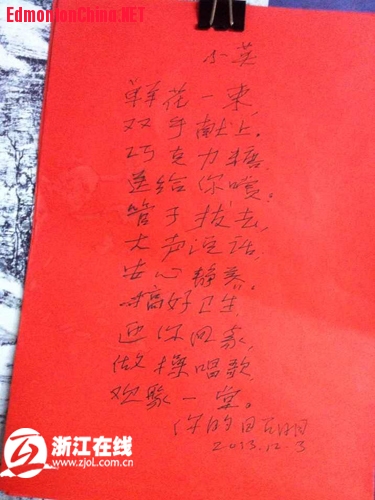 EdmontonChina.NET
小英
鲜花一束,
双手献上,
巧克力糖,
送给你嚐。
管子拔去,
大声说话,
安心静养,
搞好卫生
迎你回家,
做操唱歌
欢聚一堂。
你的
2013.12.3
浙江在线
www.zjol.com.cn